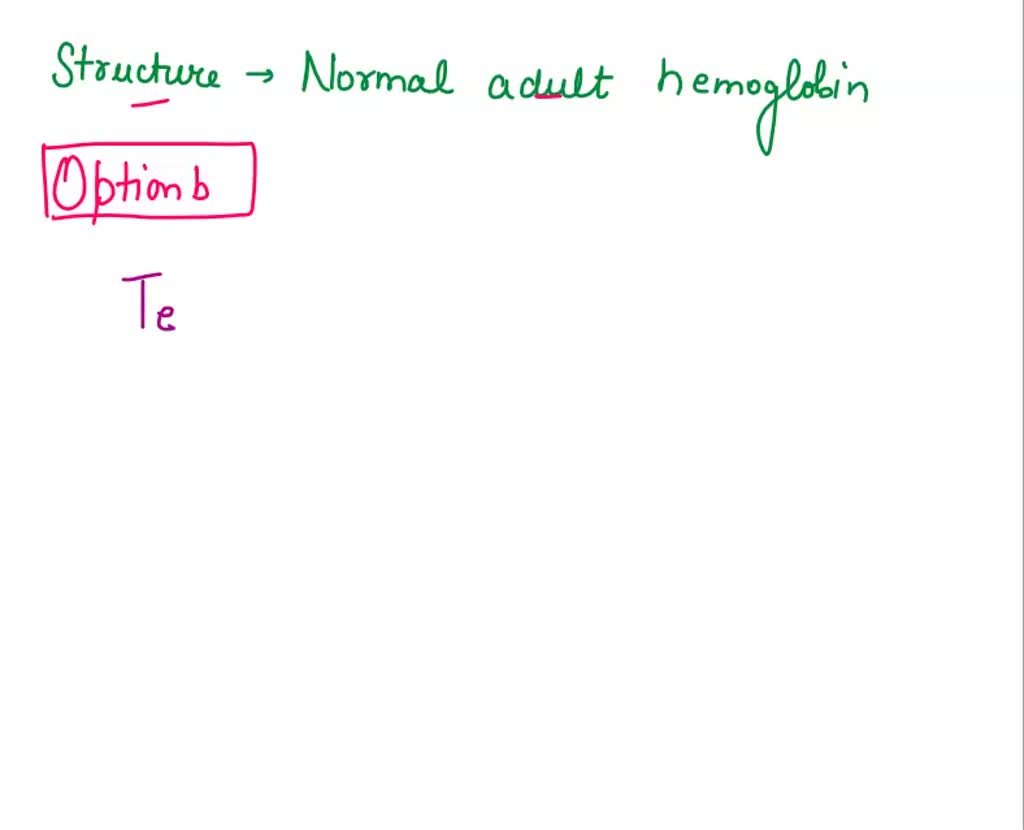 Structure → Normal adult hemoglobin
Option b
Te